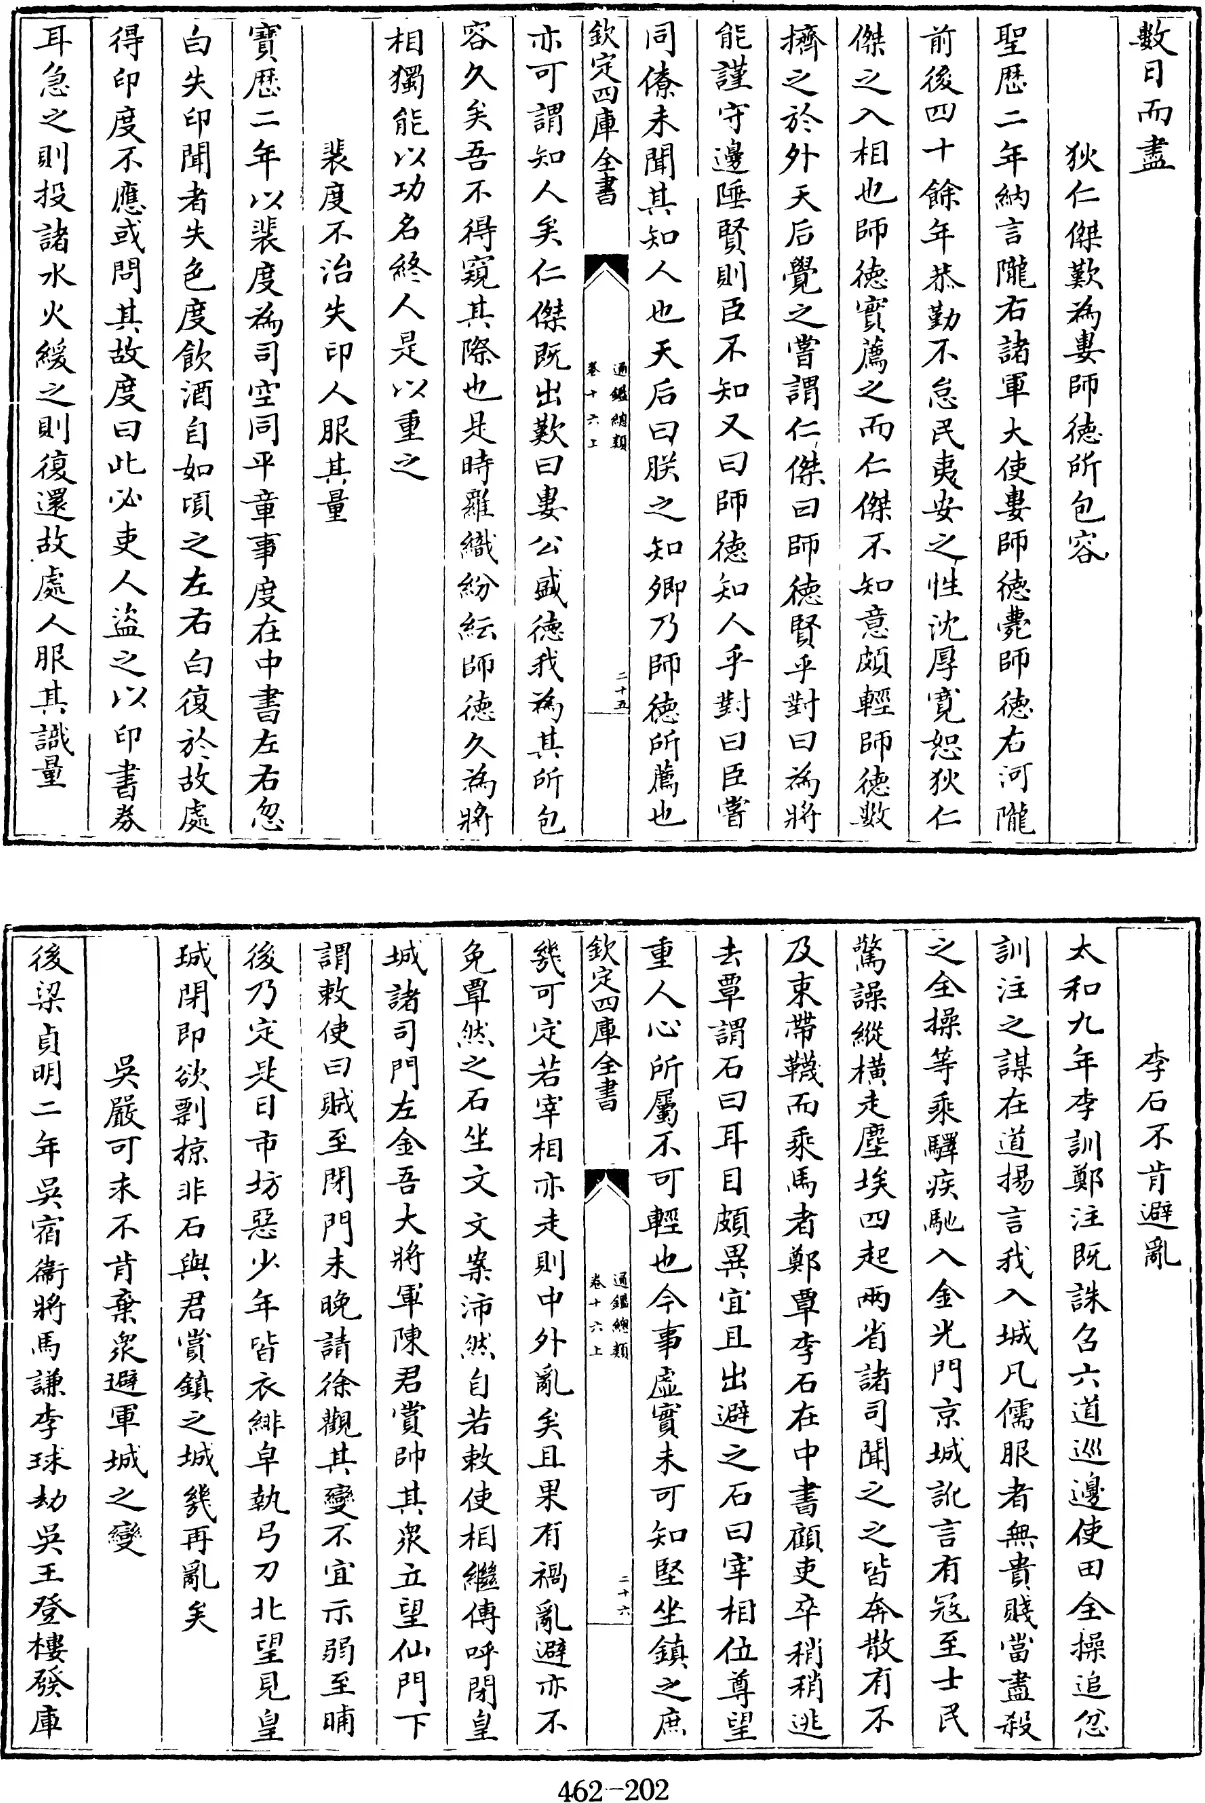 數日而盡
狄仁傑歎為婁師徳所包容
聖歴二年納言隴右諸軍大使婁師徳薨師徳右河隴
前後四十餘年恭勤不怠民夷安之性沈厚寛恕狄仁
傑之入相也師徳實薦之而仁傑不知意頗輕師徳數
擠之於外天后覺之嘗謂仁傑曰師徳賢乎對曰為將
能謹守邊陲賢則臣不知又曰師徳知人乎對曰臣嘗
同僚未聞其知人也天后曰朕之知卿乃師徳所薦也
欽定四庫全書
通鑑總類
卷十六上
二十五
亦可謂知人矣仁傑既出歎曰婁公盛徳我為其所包
容久矣吾不得窺其際也是時羅織紛紜師徳久為將
相獨能以功名終人是以重之
裴度不治失印人服其量
寳歴二年以裴度為司空同平章事度在中書左右忽
白失印聞者失色度飲酒自如頃之左右白復於故處
得印度不應或問其故度曰此必吏人盜之以印書劵
耳急之則投諸水火緩之則復還故處人服其識量
李石不肯避亂
太和九年李訓鄭注既誅召六道巡邊使田全操追忿
訓注之謀在道揚言我入城凡儒服者無貴賤當盡殺
之全操等乘驛疾馳入金光門京城訛言有寇至士民
驚譟縱橫走塵埃四起兩省諸司聞之皆奔散有不
及束帶韈而乘馬者鄭覃李石在中書顧吏卒稍稍逃
去覃謂石曰耳目頗異宜且出避之石曰宰相位尊望
重人心所屬不可輕也今事虛實未可知堅坐鎮之庶
欽定四庫全書
通鑑總類
卷十六上
二十六
幾可定若宰相亦走則中外亂矣且果有禍亂避亦不
免覃然之石坐文案沛然自若敕使相繼傳呼閉皇
城諸司門左金吾大將軍陳君賞帥其衆立望仙門下
謂敕使曰賊至閉門未晚請徐觀其變不宜示弱至晡
後乃定是日市坊惡少年皆衣緋皁執弓刀北望見皇
城閉即欲剽掠非石與君賞鎮之城幾再亂矣
吳嚴可求不肯棄衆避軍城之變
後梁貞明二年吳宿衞將馬謙李球劫吳王登樓發庫
462-202